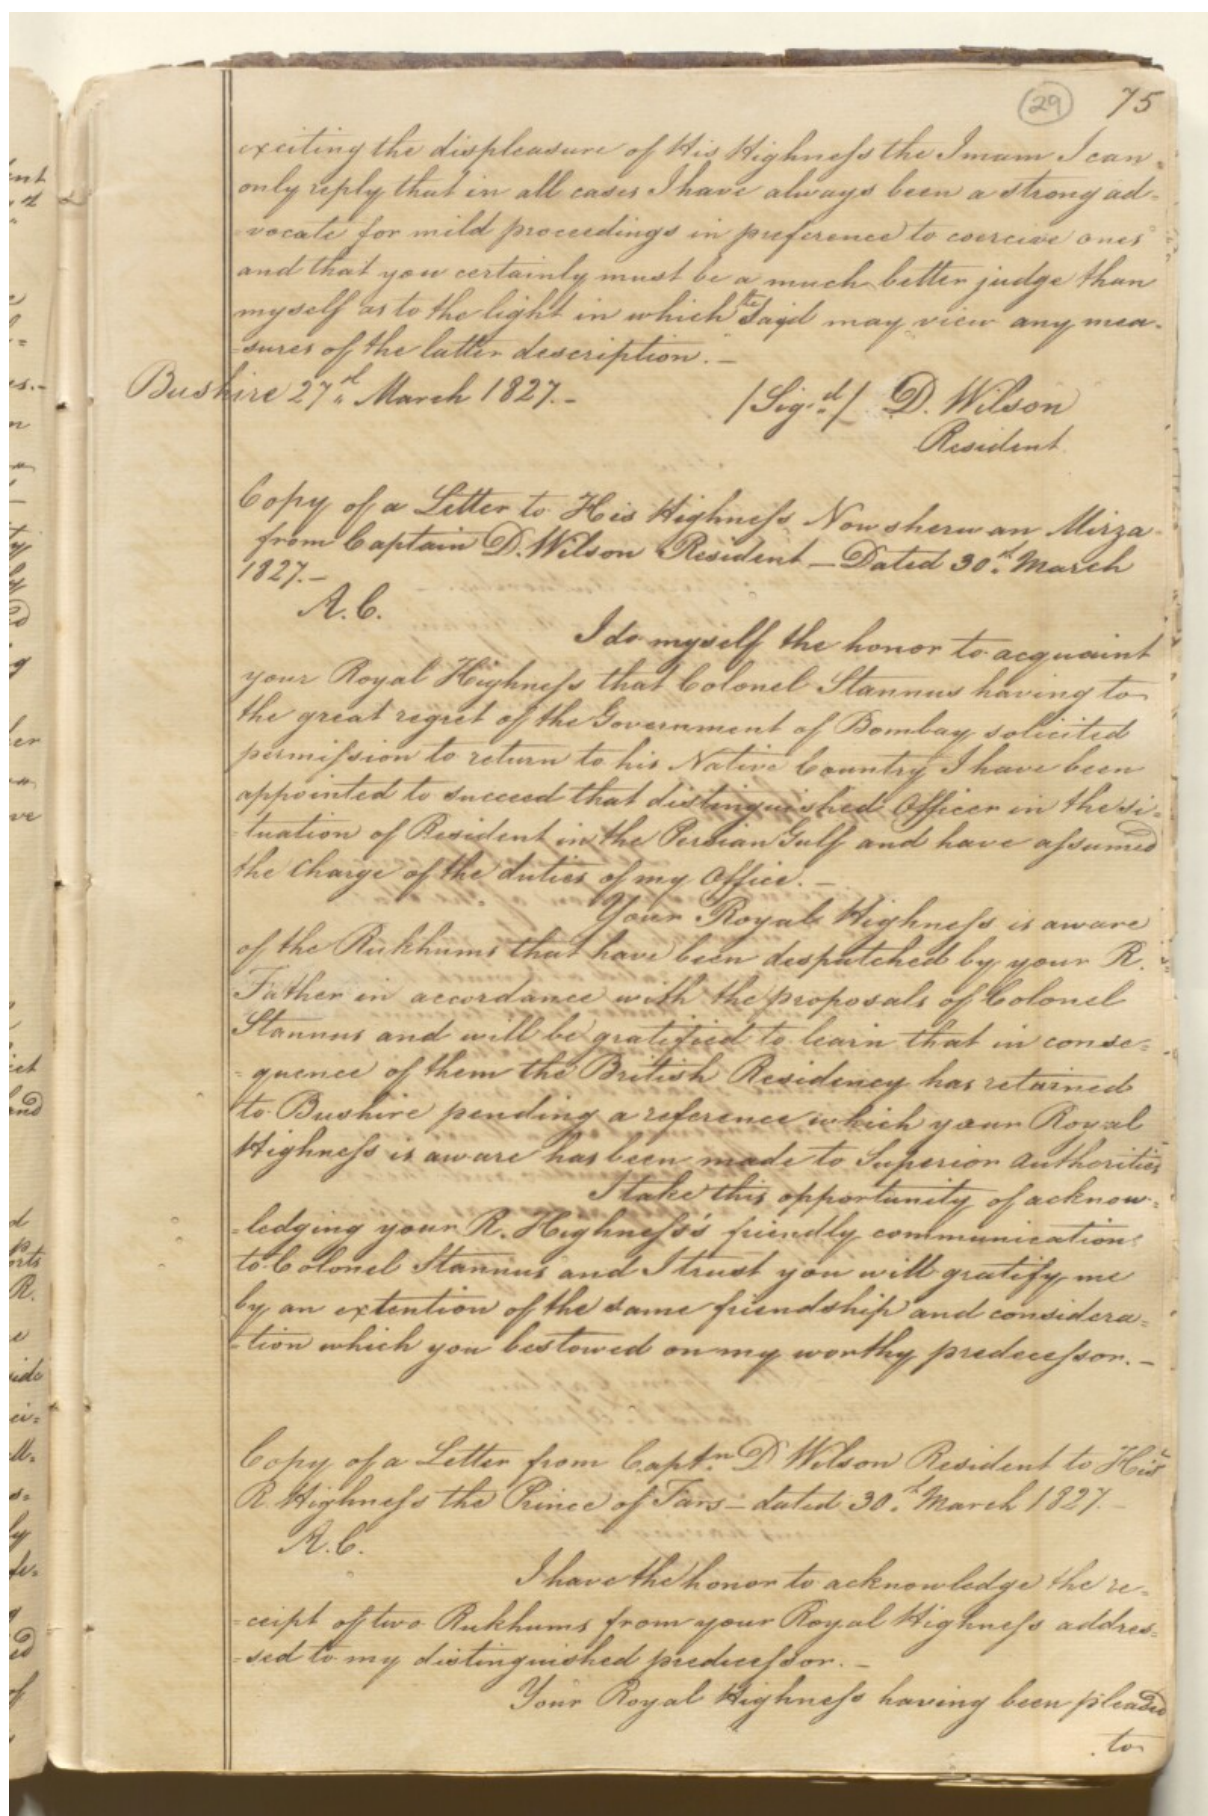 29 75
exciting the displeasure of His Highness the Imam I can
only reply that in all cases I have always been a strong ad=
=vocate for mild proceedings in preference to coercive ones
and that you certainly must be a much better judge than
myself as to the light in which the Sayd may view any mea=
=sures of the latter description. _
Bushire 27th March 1827. _ /Sigd/ D. Wilson
Resident
Copy of a Letter to His Highness Nowsherwan Mirza
from Captain D. Wilson Resident _ Dated 30th March
1827. _
A. C.
I do myself the honor to acquaint
your Royal Highness that Colonel Stannus having to
the great regret of the Government of Bombay solicited
permission to return to his Native Country I have been
appointed to succeed that distinguished Officer in the si=
=tuation of Resident in the Persian Gulf and have assumed
the Charge of the duties of my Office. _
Your Royal Highness is aware
of the Rukhums that have been despatched by your R.
Father in accordance with the proposals of Colonel
Stannus and will be gratified to learn that in conse=
=quence of them the British Residency has returned
to Bushire pending a reference which your Royal
Highness is aware has been made to Superior Authorities
I take this opportunity of acknow=
=ledging your R. Highness's friendly communications
to Colonel Stannus and I trust you will gratify me
by an extention of the same friendship and considera=
=tion which you bestowed on my worthy predecessor. _
Copy of a Letter from Captn D Wilson Resident to His
R. Highness the Prince of Fars _ dated 30th March 1827. _
A. C.
I have the honor to acknowledge the re=
=ceipt of two Rukhums from your Royal Highness addres=
=sed to my distinguished predecessor. _
Your Royal Highness having been pleased
to